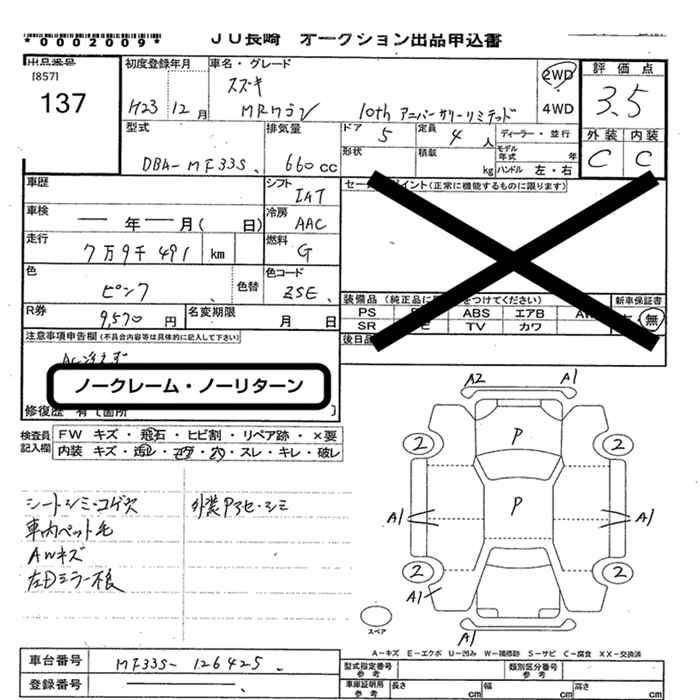 *0002009* JU長崎 オークション出品申込書
出品番号
[857]
137
初度登録年月
H23 12月
車名・グレード
スズキ
MRワゴン 10th アニバーサリーリミテッド
2WD
4WD
評価点
3.5
外装 内装
C C
型式
DBA-MF33S
排気量
660cc
ドア 5
形状
定員 4人
積載 kg
ディーラー・並行
モデル年式 年
ハンドル 左・右
車歴
シフト IAT
車検 年 月( 日)
冷房 AAC
走行 7万9千491 km
燃料 G
色 ピンク
色替
色コード ZSE
R券 9,570円
名変期限 月 日
セールスポイント(正常に機能するものに限ります)
装備品 (純正品に をつけてください)
PS ABS エアB
SR TV カワ
新車保証書
無
後日品
注意事項申告欄(不具合内容等は具体的に記入して下さい)
AC冷えず
ノークレーム・ノーリターン
修復歴 有 [箇所 ]
検査員記入欄
FW キズ・飛石・ヒビ割・リペア跡・×要
内装 キズ・汚レ・コゲ・穴・スレ・キレ・破レ
シートシミ・コゲ穴
車内ペット毛
AWキズ
左Dミラー不良
外装Pアセ・シミ
A2 A1
P
2 2
P
A1 A1
2 2
A1
A1
スペア
A-キズ E-エクボ U-凹み W-補修跡 S-サビ C-腐食 XX-交換済
車台番号 MF33S-126425
登録番号
型式指定番号 参考
類別区分番号 参考
車庫証明用 参考 長さ cm 幅 cm 高さ cm